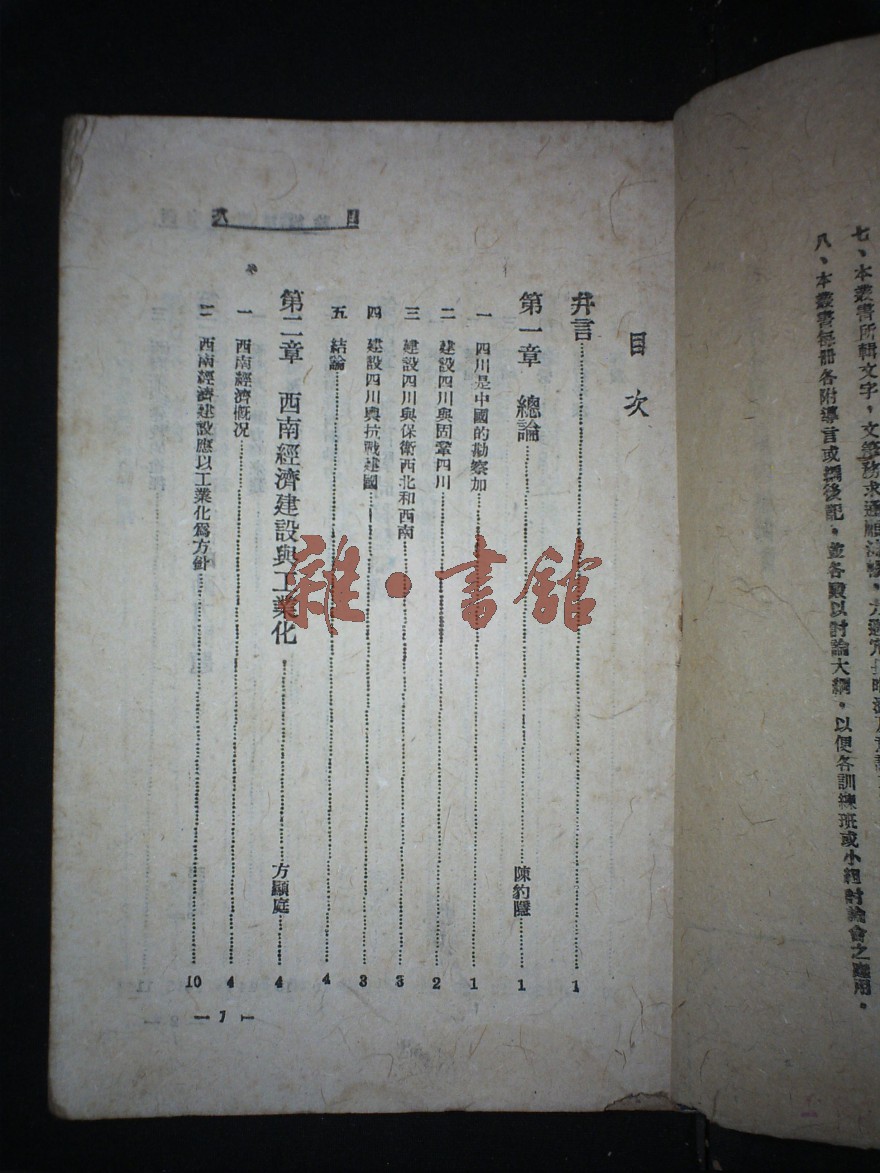 七、本叢書所輯文字，文筆務求通順流暢，
八、本叢書每冊各附導言或編後記，並各殿以討論大綱，以便各訓練班或小組討論會之應用。
目次
目次
弁言 1
第一章 總論 陳豹隱 1
一 四川是中國的勘察加 1
二 建設四川與固鞏四川 2
三 建設四川與保衛西北和西南 3
四 建設四川與抗戰建國 3
五 結論 4
第二章 西南經濟建設與工業化 方顯庭 4
一 西南經濟概况 4
二 西南經濟建設應以工業化爲方針 10
— 1 —
雜·書館